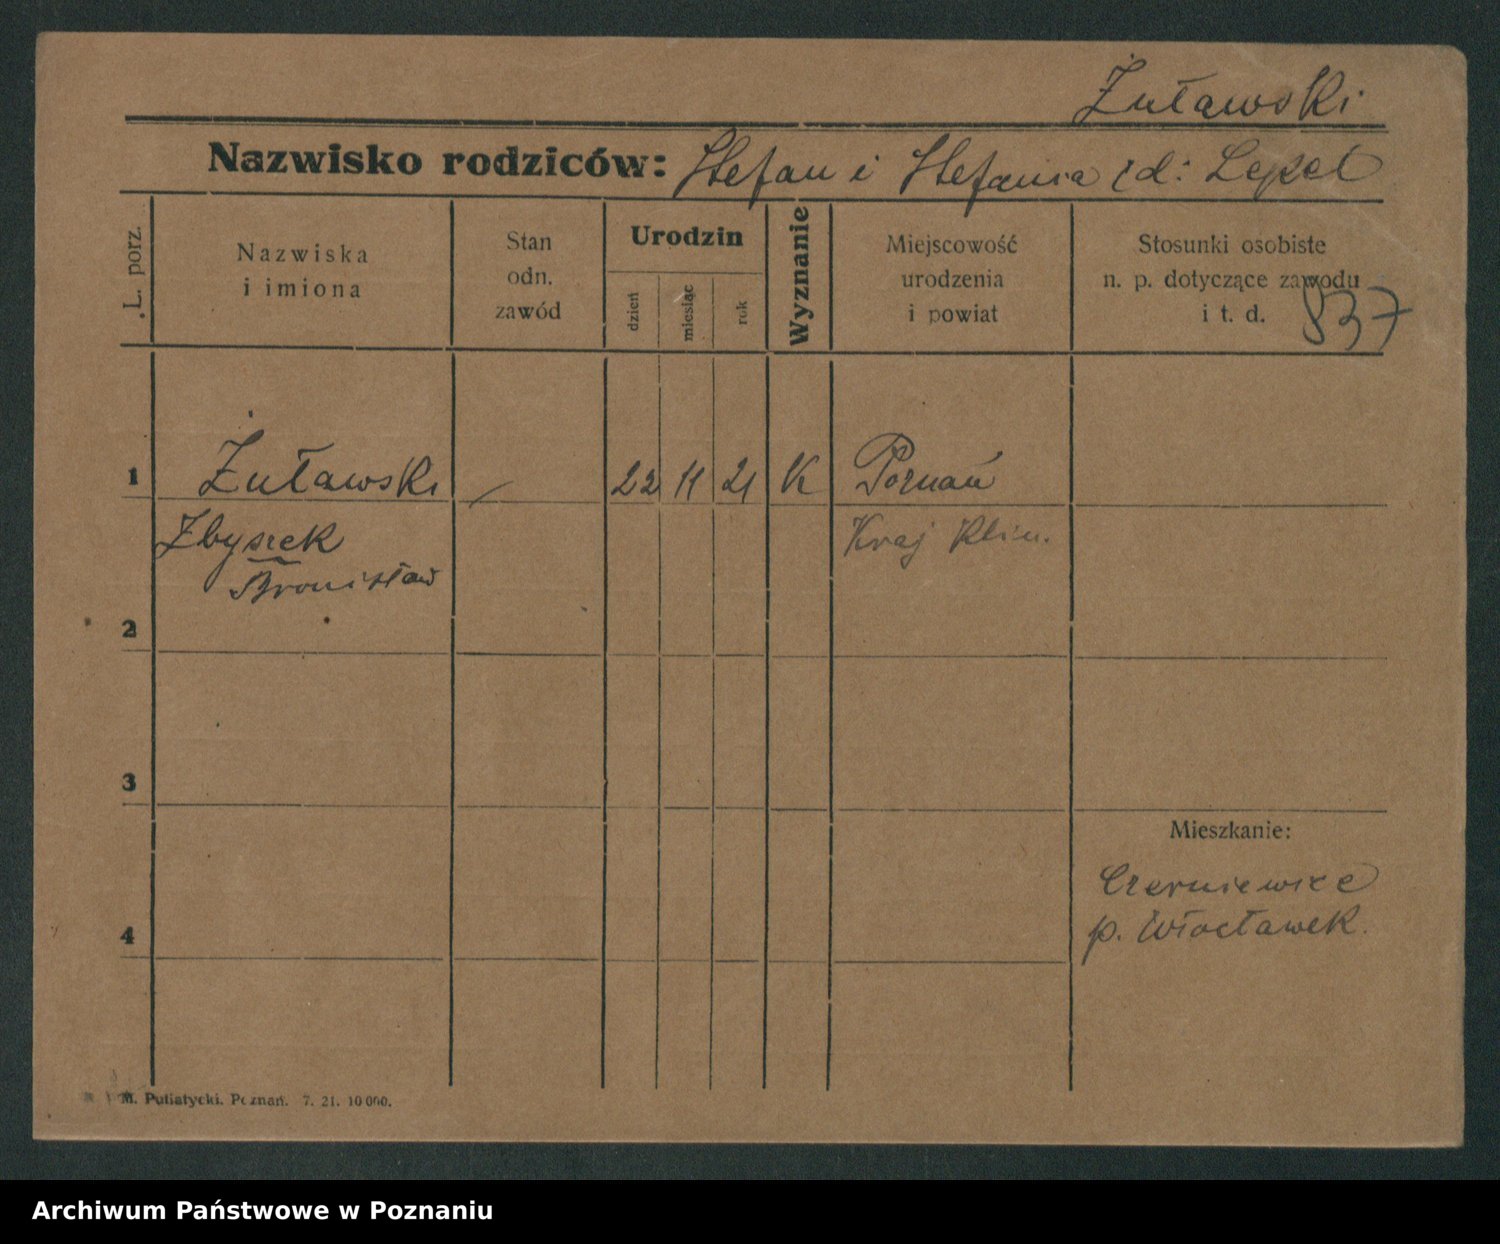 Żuławski
Nazwisko rodziców: Stefan i Stefania zd: Lepel
L. porz.
Nazwiska
i imiona
Stan
odn.
zawód
Urodzin
dzień
miesiąc
rok
Wyznanie
Miejscowość
urodzenia
i powiat
Stosunki osobiste
n. p. dotyczące zawodu
i t. d.
937
1
Żuławski
22
11
21
K
Poznań
Zbyszek
Kraj Klin.
Bronisław
2
3
Mieszkanie:
Czerniewice
p. Włocławek.
4
M. Putiatycki. Poznań. 7. 21. 10 000.
Archiwum Państwowe w Poznaniu